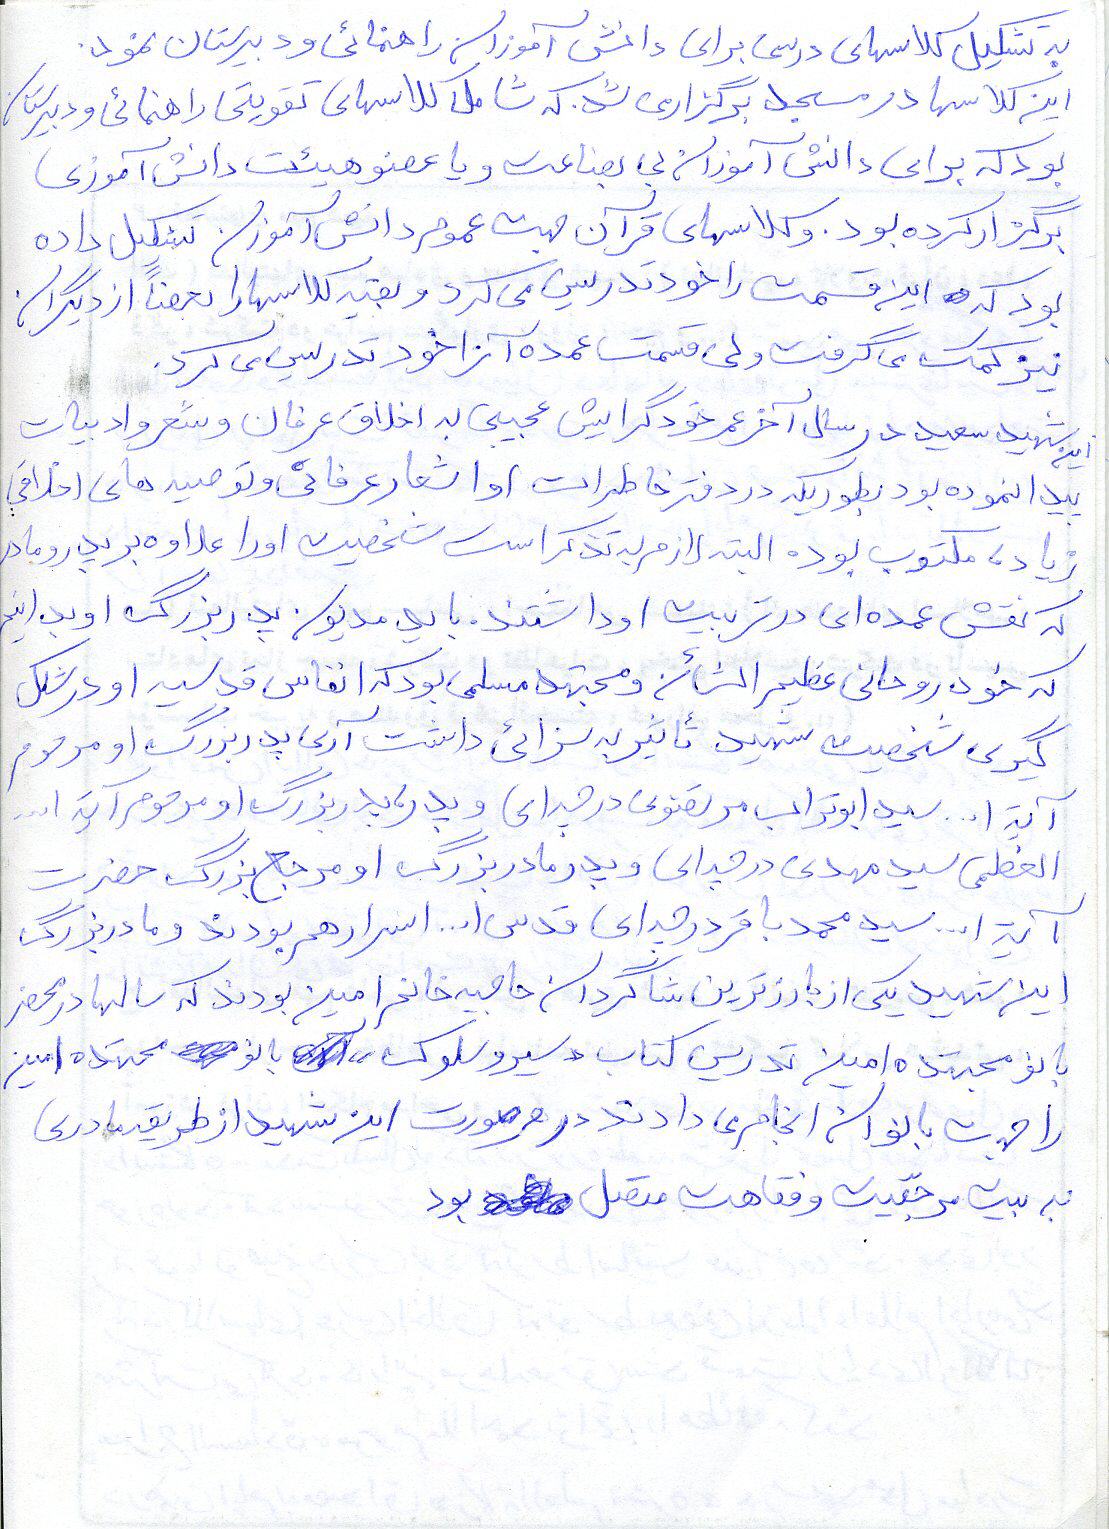 به تشکیل کلاسهای درسی برای دانش آموزان راهنمائی و دبیرستان نمود.
این کلاسها در مسجد برگزاری شد. که شامل کلاسهای تقویتی راهنمائی و دبیرستان
بود که برای دانش آموزان بی بضاعت و یا عضو هیئت دانش آموزی
برگزار کرده بود. و کلاسهای قرآن جهت عموم دانش آموزان تشکیل داده
بود که این قسمت را خود تدریس می کرد و بقیه کلاسها را بعضاً از دیگران
نیز کمک می گرفت ولی قسمت عمده آنرا خود تدریس می کرد.
این شهید سعید در سال آخر عمر خود گرایش عجیبی به اخلاق عرفان و شعر و ادبیات
پیدا نموده بود بطوریکه در دفتر خاطرات او اشعار عرفانی و توصیه های اخلاقی
زیادی مکتوب بوده البته لازم به تذکر است شخصیت او را علاوه بر پدر و مادر
که نقش عمده ای در تربیت او داشتند. باید مدیون پدربزرگ او بدانیم
که خود روحانی عظیم الشأن و مجتهد مسلمی بود که انفاس قدسیه او در شکل
گیری شخصیت شهید تأثیر به سزائی داشت آری پدربزرگ او مرحوم
آیة ا... سید ابوتراب مرتضوی درچه ای و پدر پدربزرگ او مرحوم آیة ا...
العظمی سید مهدی درچه ای و پدر مادربزرگ او مرجع بزرگ حضرت
آیة ا... سید محمد باقر درچه ای قدس ا... اسرارهم بودند و مادربزرگ
این شهید یکی از بارزترین شاگردان حاجیه خانم امین بودند که سالها در محضر
بانو مجتهده امین تدریس کتاب «سیر و سلوک» بانو مجتهده امین
را جهت بانوان انجام می دادند در هر صورت این شهید از طریق مادری
به بیت مرجعیت و فقاهت متصل بود